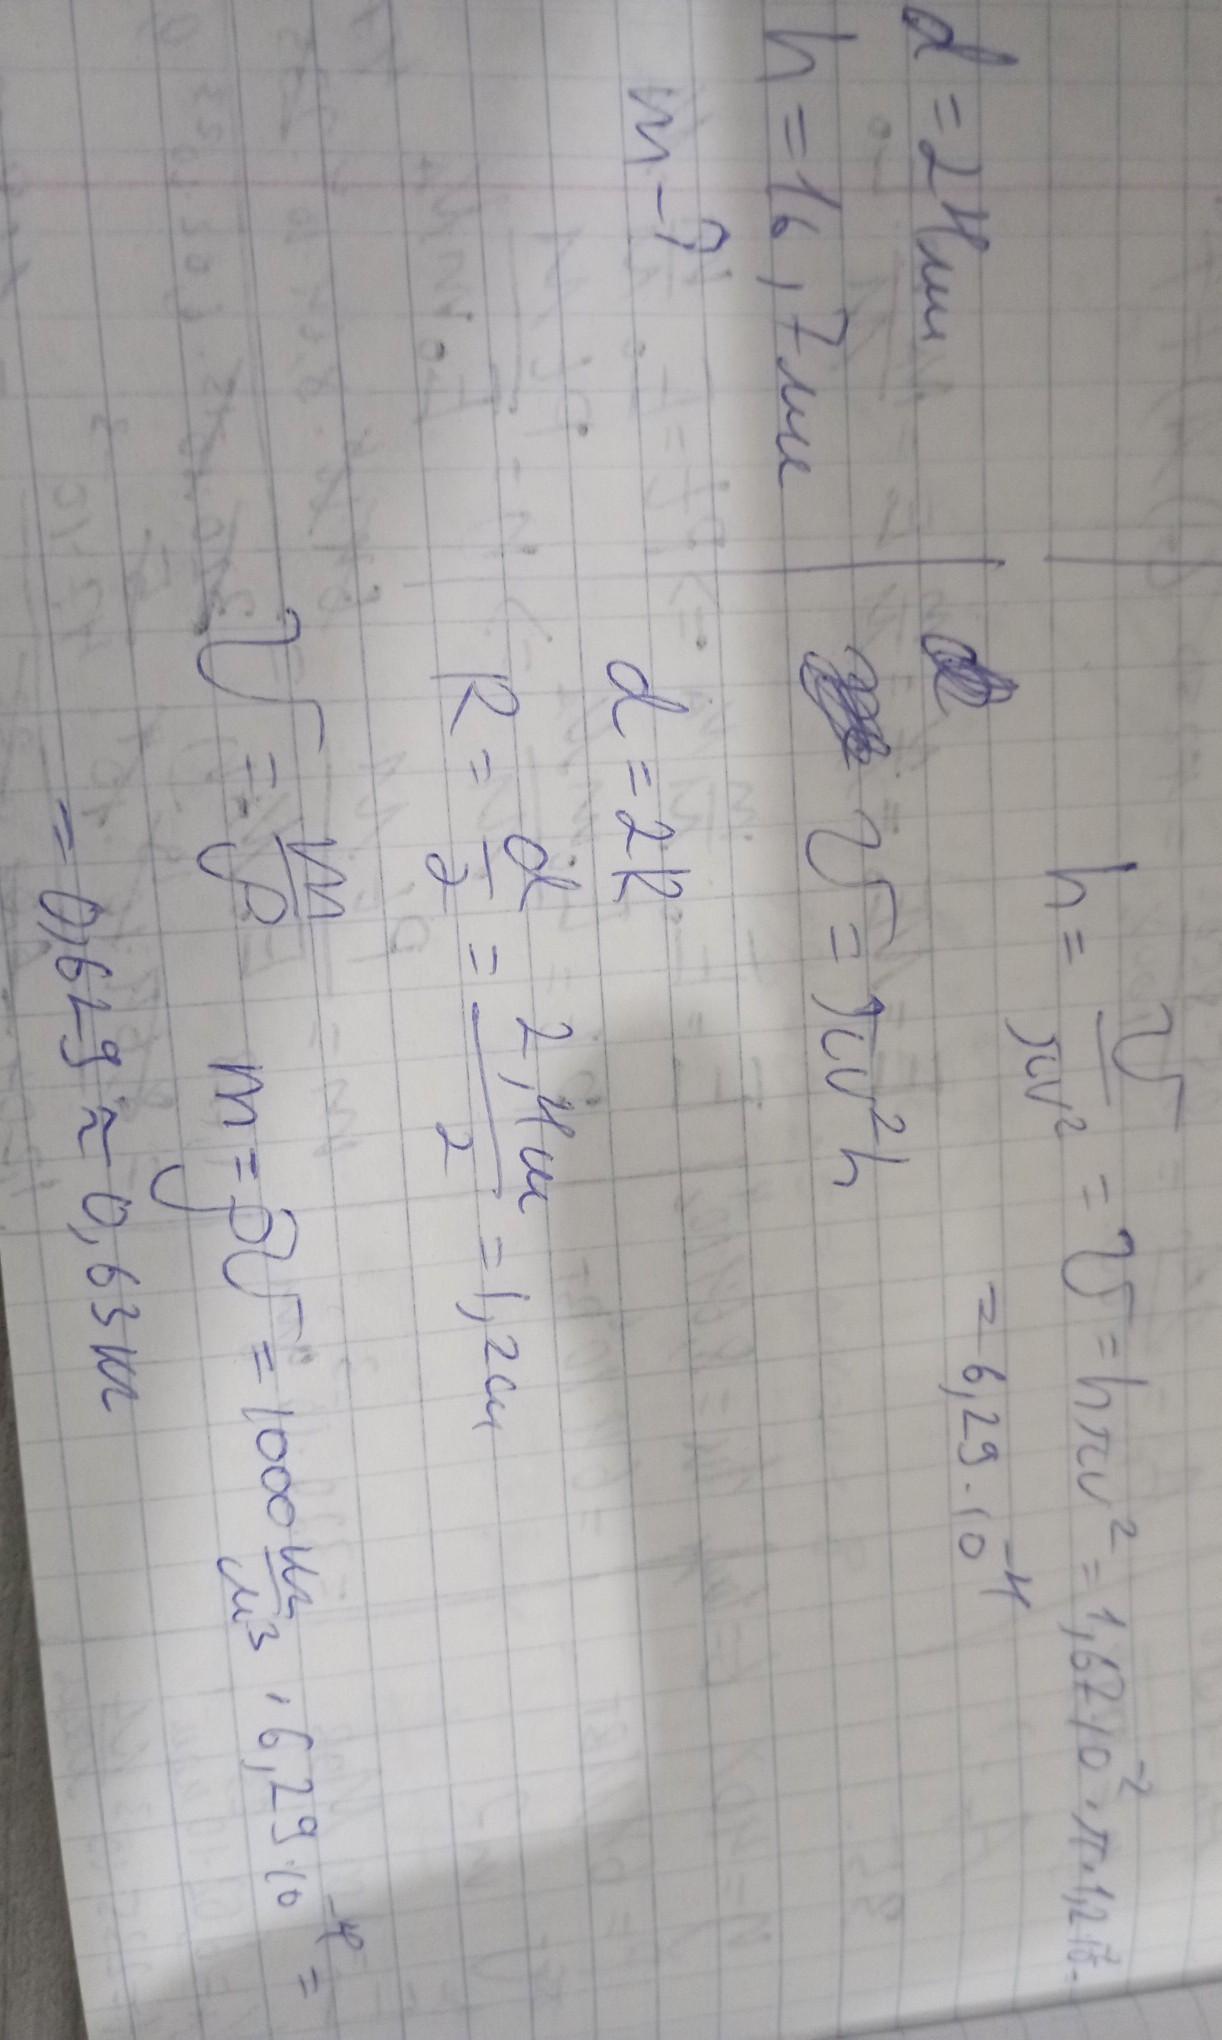 d = 24мм
h = 16,7мм
m - ?
h = V/πr² = V = hπr² = 1,67·10⁻²·π·1,2·10⁻
= 6,29·10⁻⁴
V = πr²h
d = 2R
R = d/2 = 2,4см/2 = 1,2см
V = m/ρ m = ρV = 1000 кг/м³ · 6,29·10⁻⁴ =
= 0,629 ≈ 0,63кг